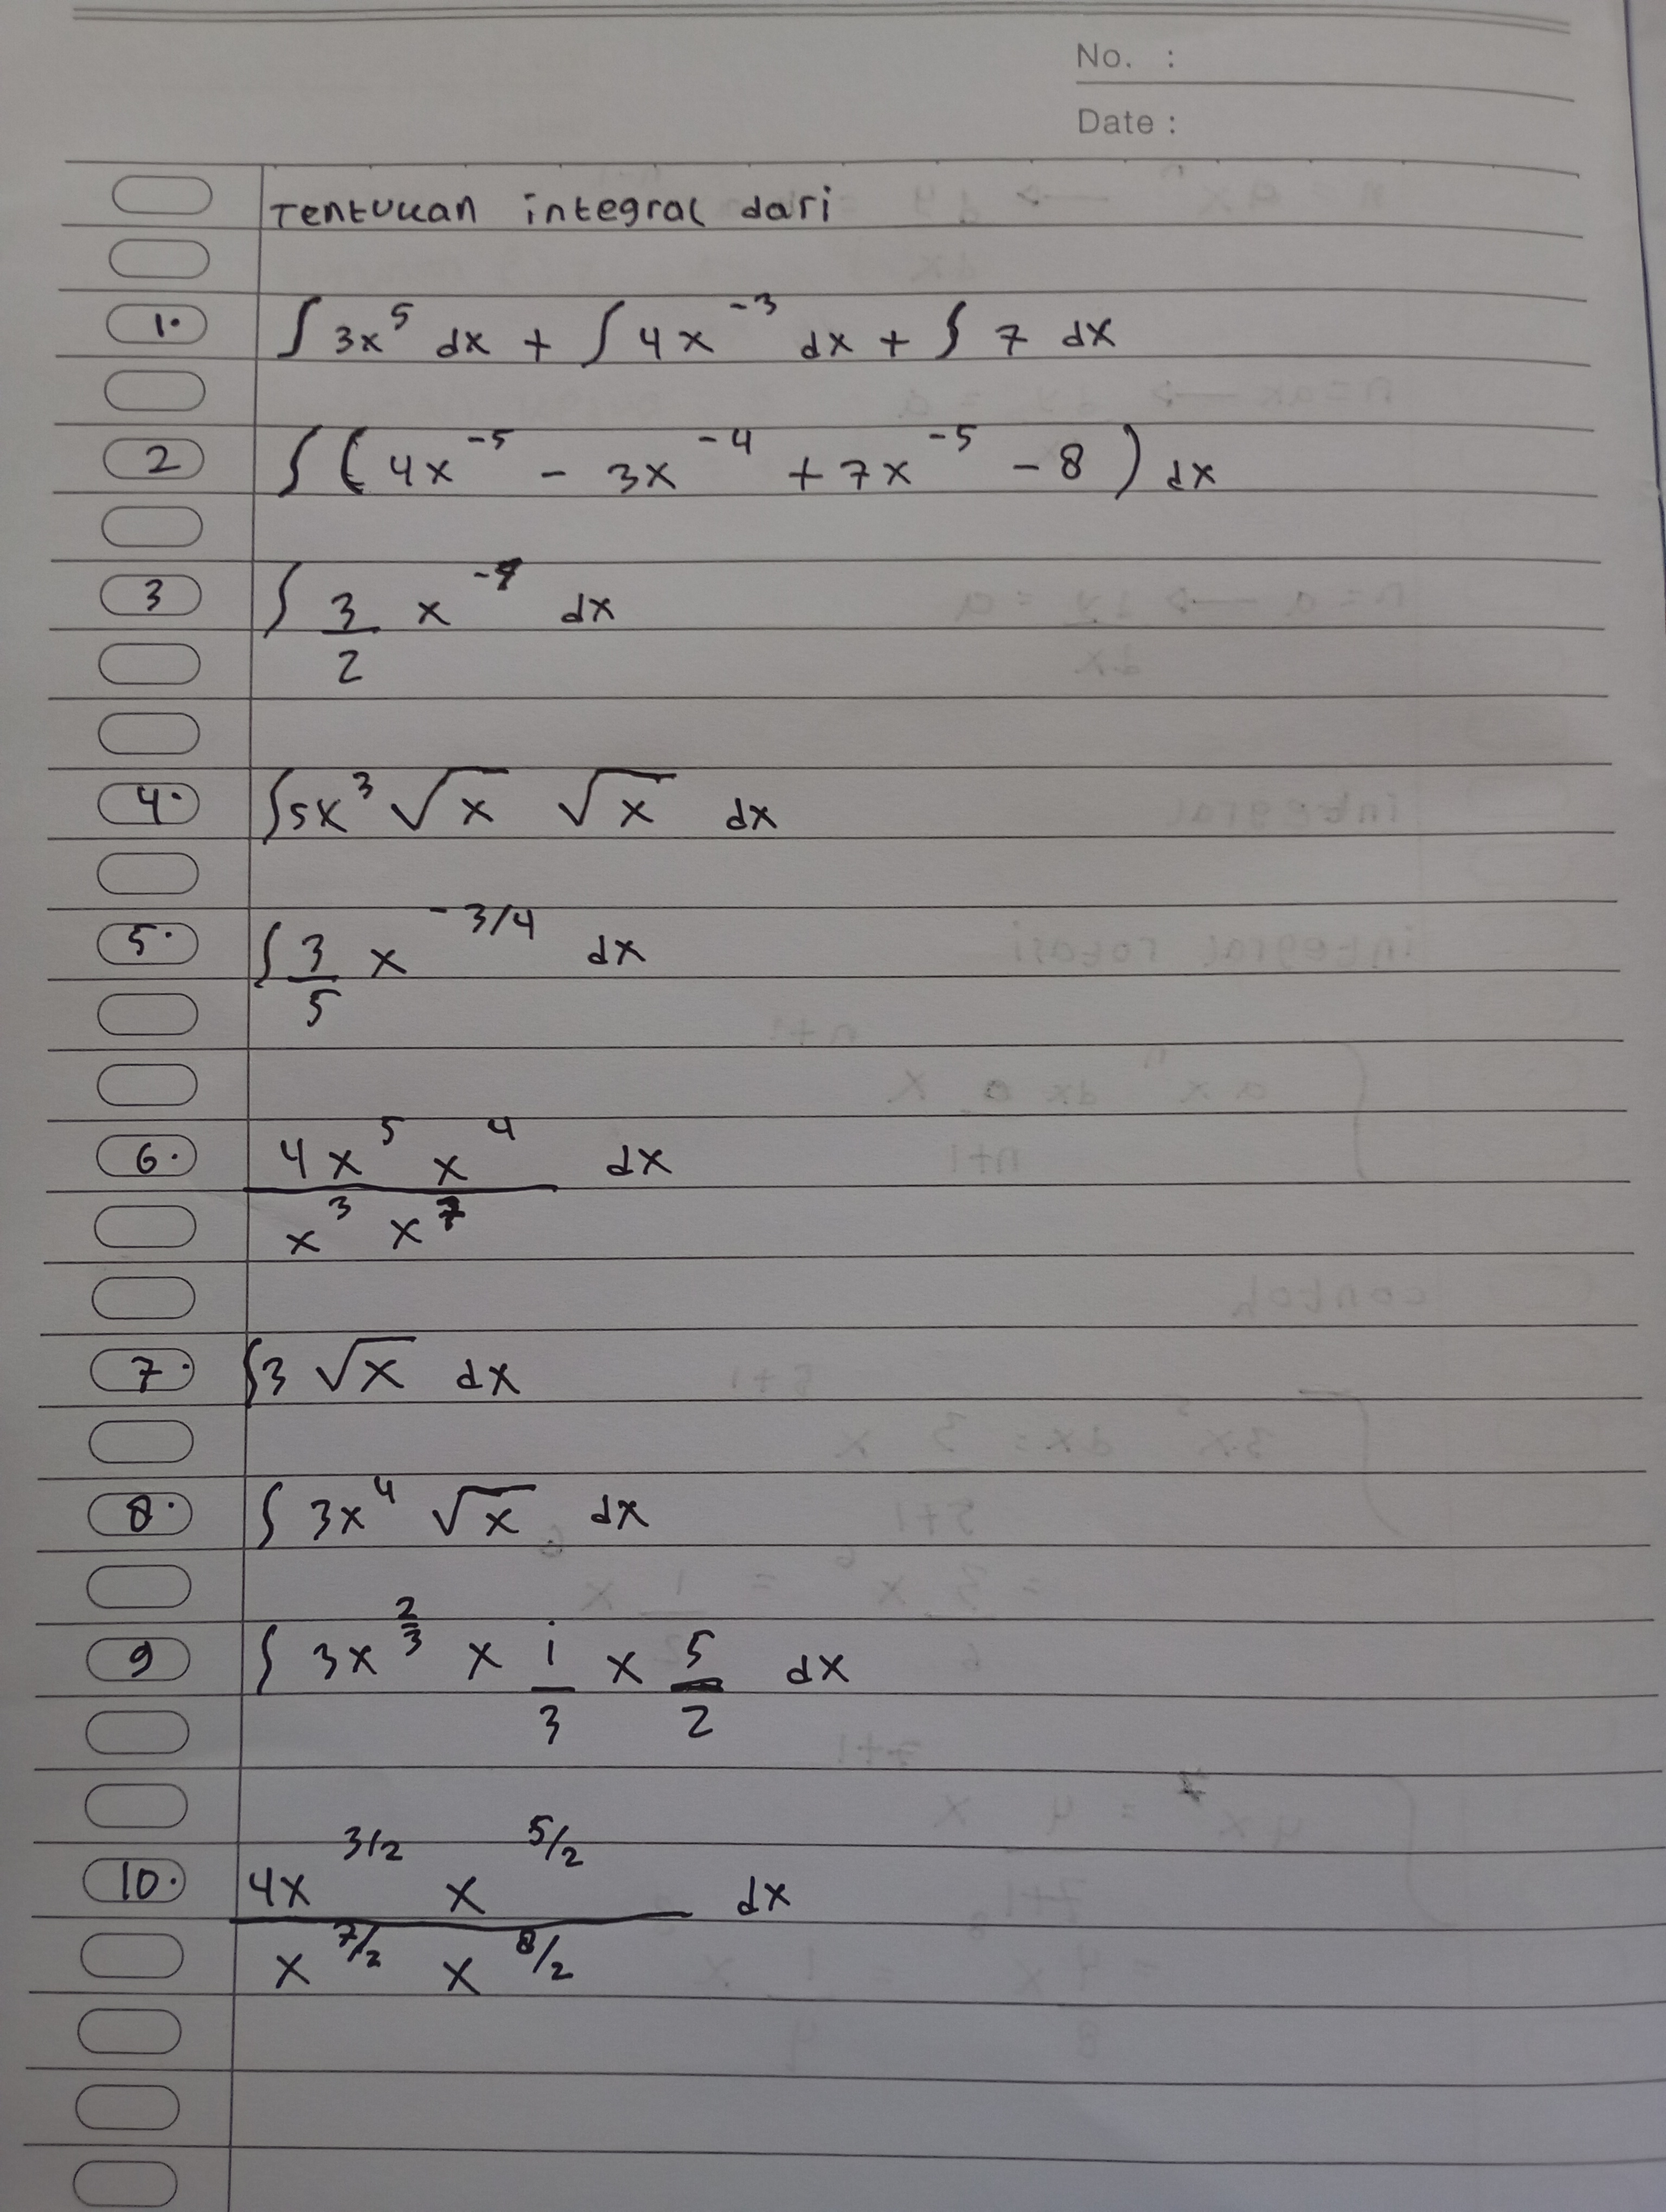 No. :
Date :
Tentukan integral dari
1. ∫ 3x⁵ dx + ∫ 4x⁻³ dx + ∫ 7 dx
2 ∫ (4x⁻⁵ - 3x⁻⁴ + 7x⁻⁵ - 8) dx
3 ∫ 3/2 x dx
4. ∫5x³ √x √x dx
5. ∫ 3/5 x^(-3/4) dx
6. 4x⁵ x⁴ / x³ x⁷ dx
7. ∫3 √x dx
8. ∫ 3x⁴ √x dx
9 ∫ 3x^(2/3) x 1/3 x 5/2 dx
10. 4x^(3/2) x^(5/2) / x^(7/2) x^(8/2) dx